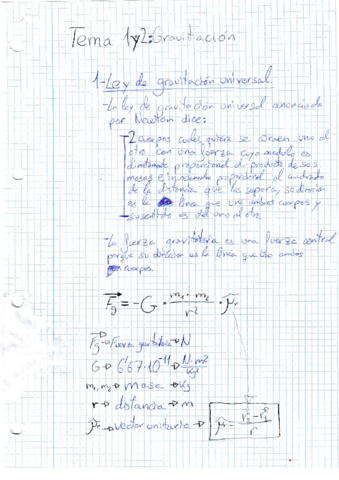 Tema 1y2: Gravitación
1-Ley de gravitación universal.
-La ley de gravitación universal enunciada
por Newton dice:
2 cuerpos cualesquiera se atraen uno al
otro con una fuerza cuyo modulo es
directamente proporcional al producto de sus
masas e inversamente proporcional al cuadrado
de la distancia que las separa, su dirección
es la línea que une ambos cuerpos y
su sentido es del uno al otro.
-La fuerza gravitatoria es una fuerza central
porque su dirección es la línea que une ambos
cuerpos.
Fg = -G · m₁ · m₂ / r² · μ̂r
Fg → Fuerza gravitatoria → N
G → 6'67·10⁻¹¹ → N·m²/Kg²
m₁, m₂ → masa → Kg
r → distancia → m
μ̂r → vector unitario → μ̂ = r₂ - r₁ / r